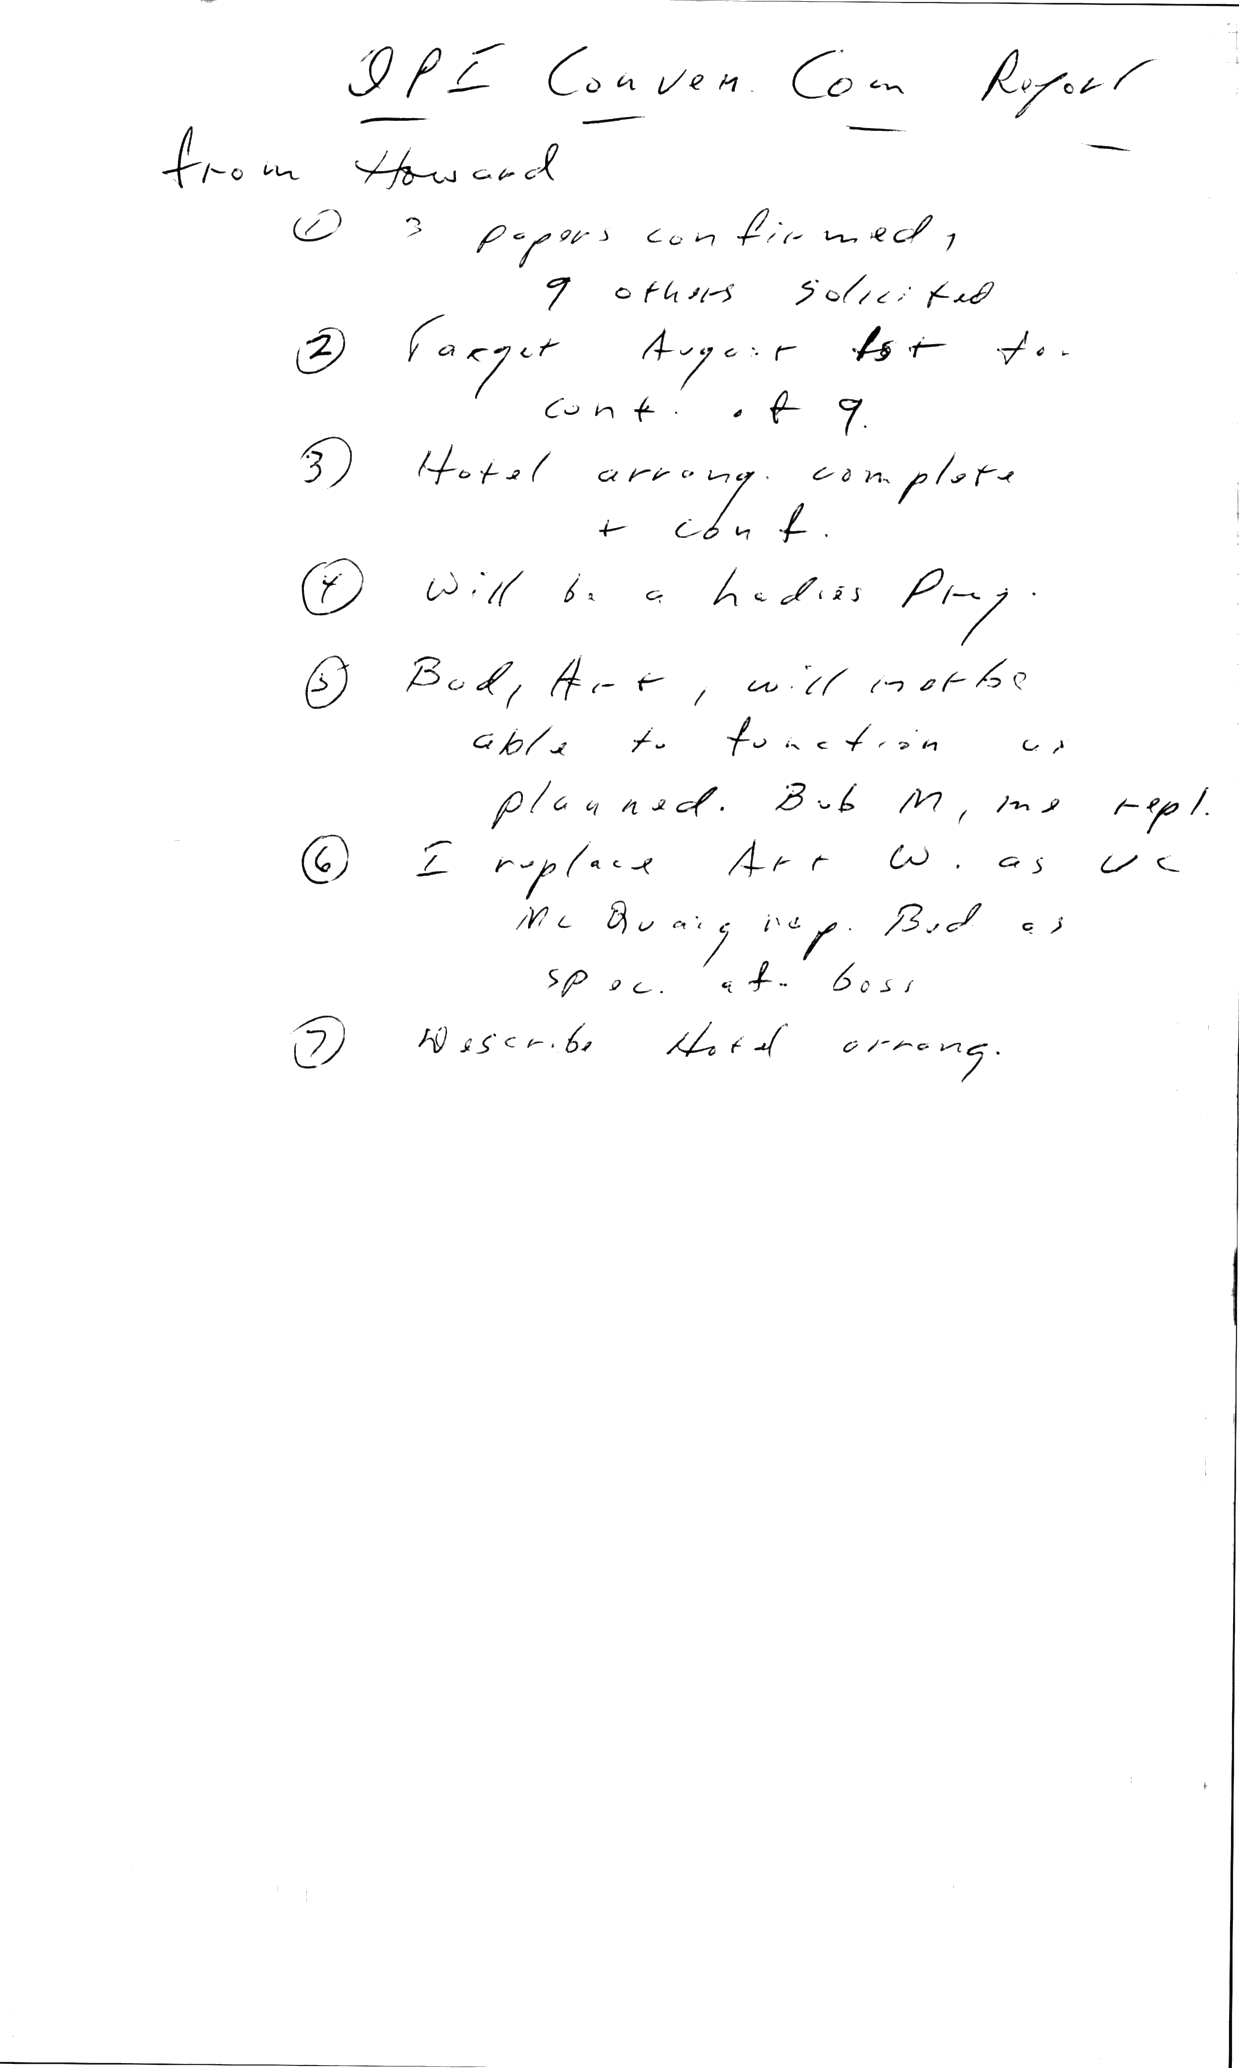 IPI Conven. Com Report
from Howard
① 3 papers confirmed,
9 others solicited
② Target August 1st for
conf. of 9.
③ Hotel arrang. complete
+ conf.
④ Will be a Ladies Prog.
⑤ Bud, Art, will not be
able to function as
planned. Bob M, me repl.
⑥ I replace Art W. as VC
McQuaig rep. Bud as
spec. af. boss
⑦ Describe Hotel arrang.